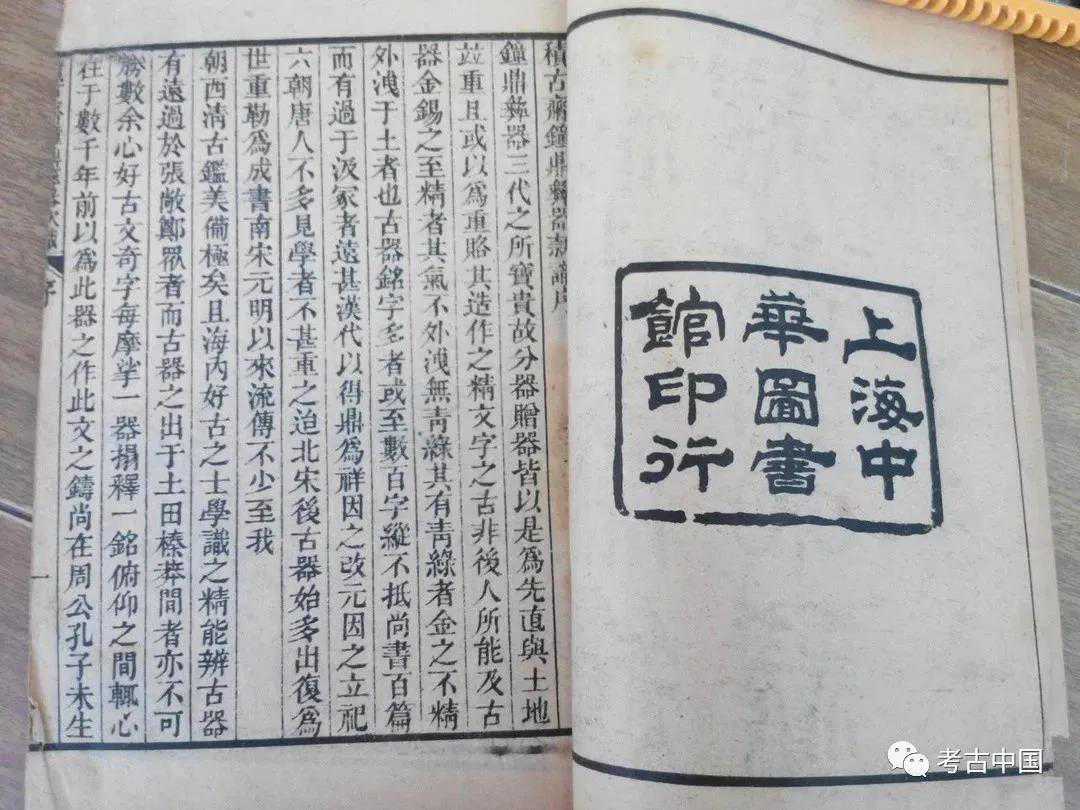 上海中
華圖書
館印行
積古齋鐘鼎彝器款識序
鐘鼎彝器三代之所寶貴故分器贈器皆以是為先直與土地
竝重且或以為重賂其造作之精文字之古非後人所能及古
器金錫之至精者其氣不外洩無青綠其有青綠者金之不精
外洩于土者也古器銘字多者或至數百字縱不抵尚書百篇
而有過于汲冢者遠甚漢代以得鼎為祥因之改元因之立祀
六朝唐人不多見學者不甚重之迨北宋後古器始多出復為
世重勒為成書南宋元明以來流傳不少至我
朝西清古鑑美備極矣且海內好古之士學識之精能辨古器
有遠過於張敞鄭眾者而古器之出于土田榛莽間者亦不可
勝數余心好古文奇字每摩挲一器搨釋一銘俯仰之間輒心
往于數千年前以為此器之作此文之鑄尚在周公孔子未生
序
一
考古中国